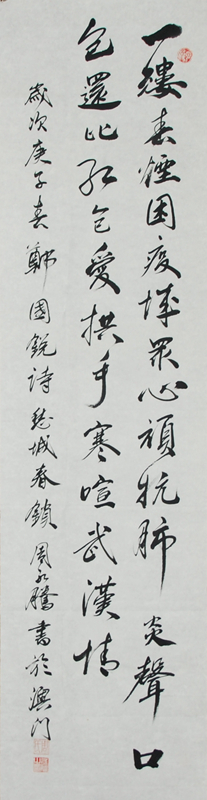 一縷春煙困疫城眾心頑抗肺炎聲口
包還比紅包愛拱手寒暄武漢情
歲次庚子春鄭國銳詩城春鎖周永騰書於澳門